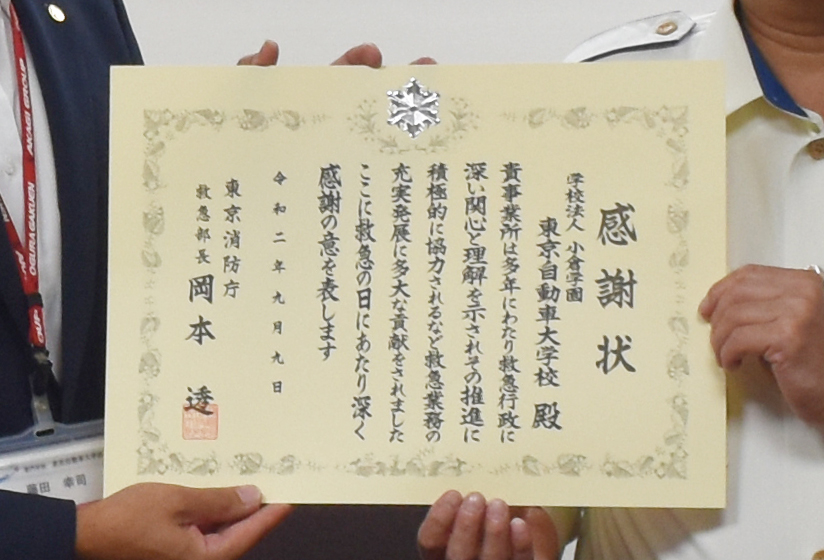 感謝状
学校法人 小倉学園
東京自動車大学校 殿
貴事業所は多年にわたり救急行政に
深い関心と理解を示されその推進に
積極的に協力されるなど救急業務の
充実発展に多大な貢献をされました
ここに救急の日にあたり深く
感謝の意を表します
令和二年九月九日
東京消防庁
救急部長 岡本 透
AKAGI GROUP
OGURA GAKUEN
田 幸司